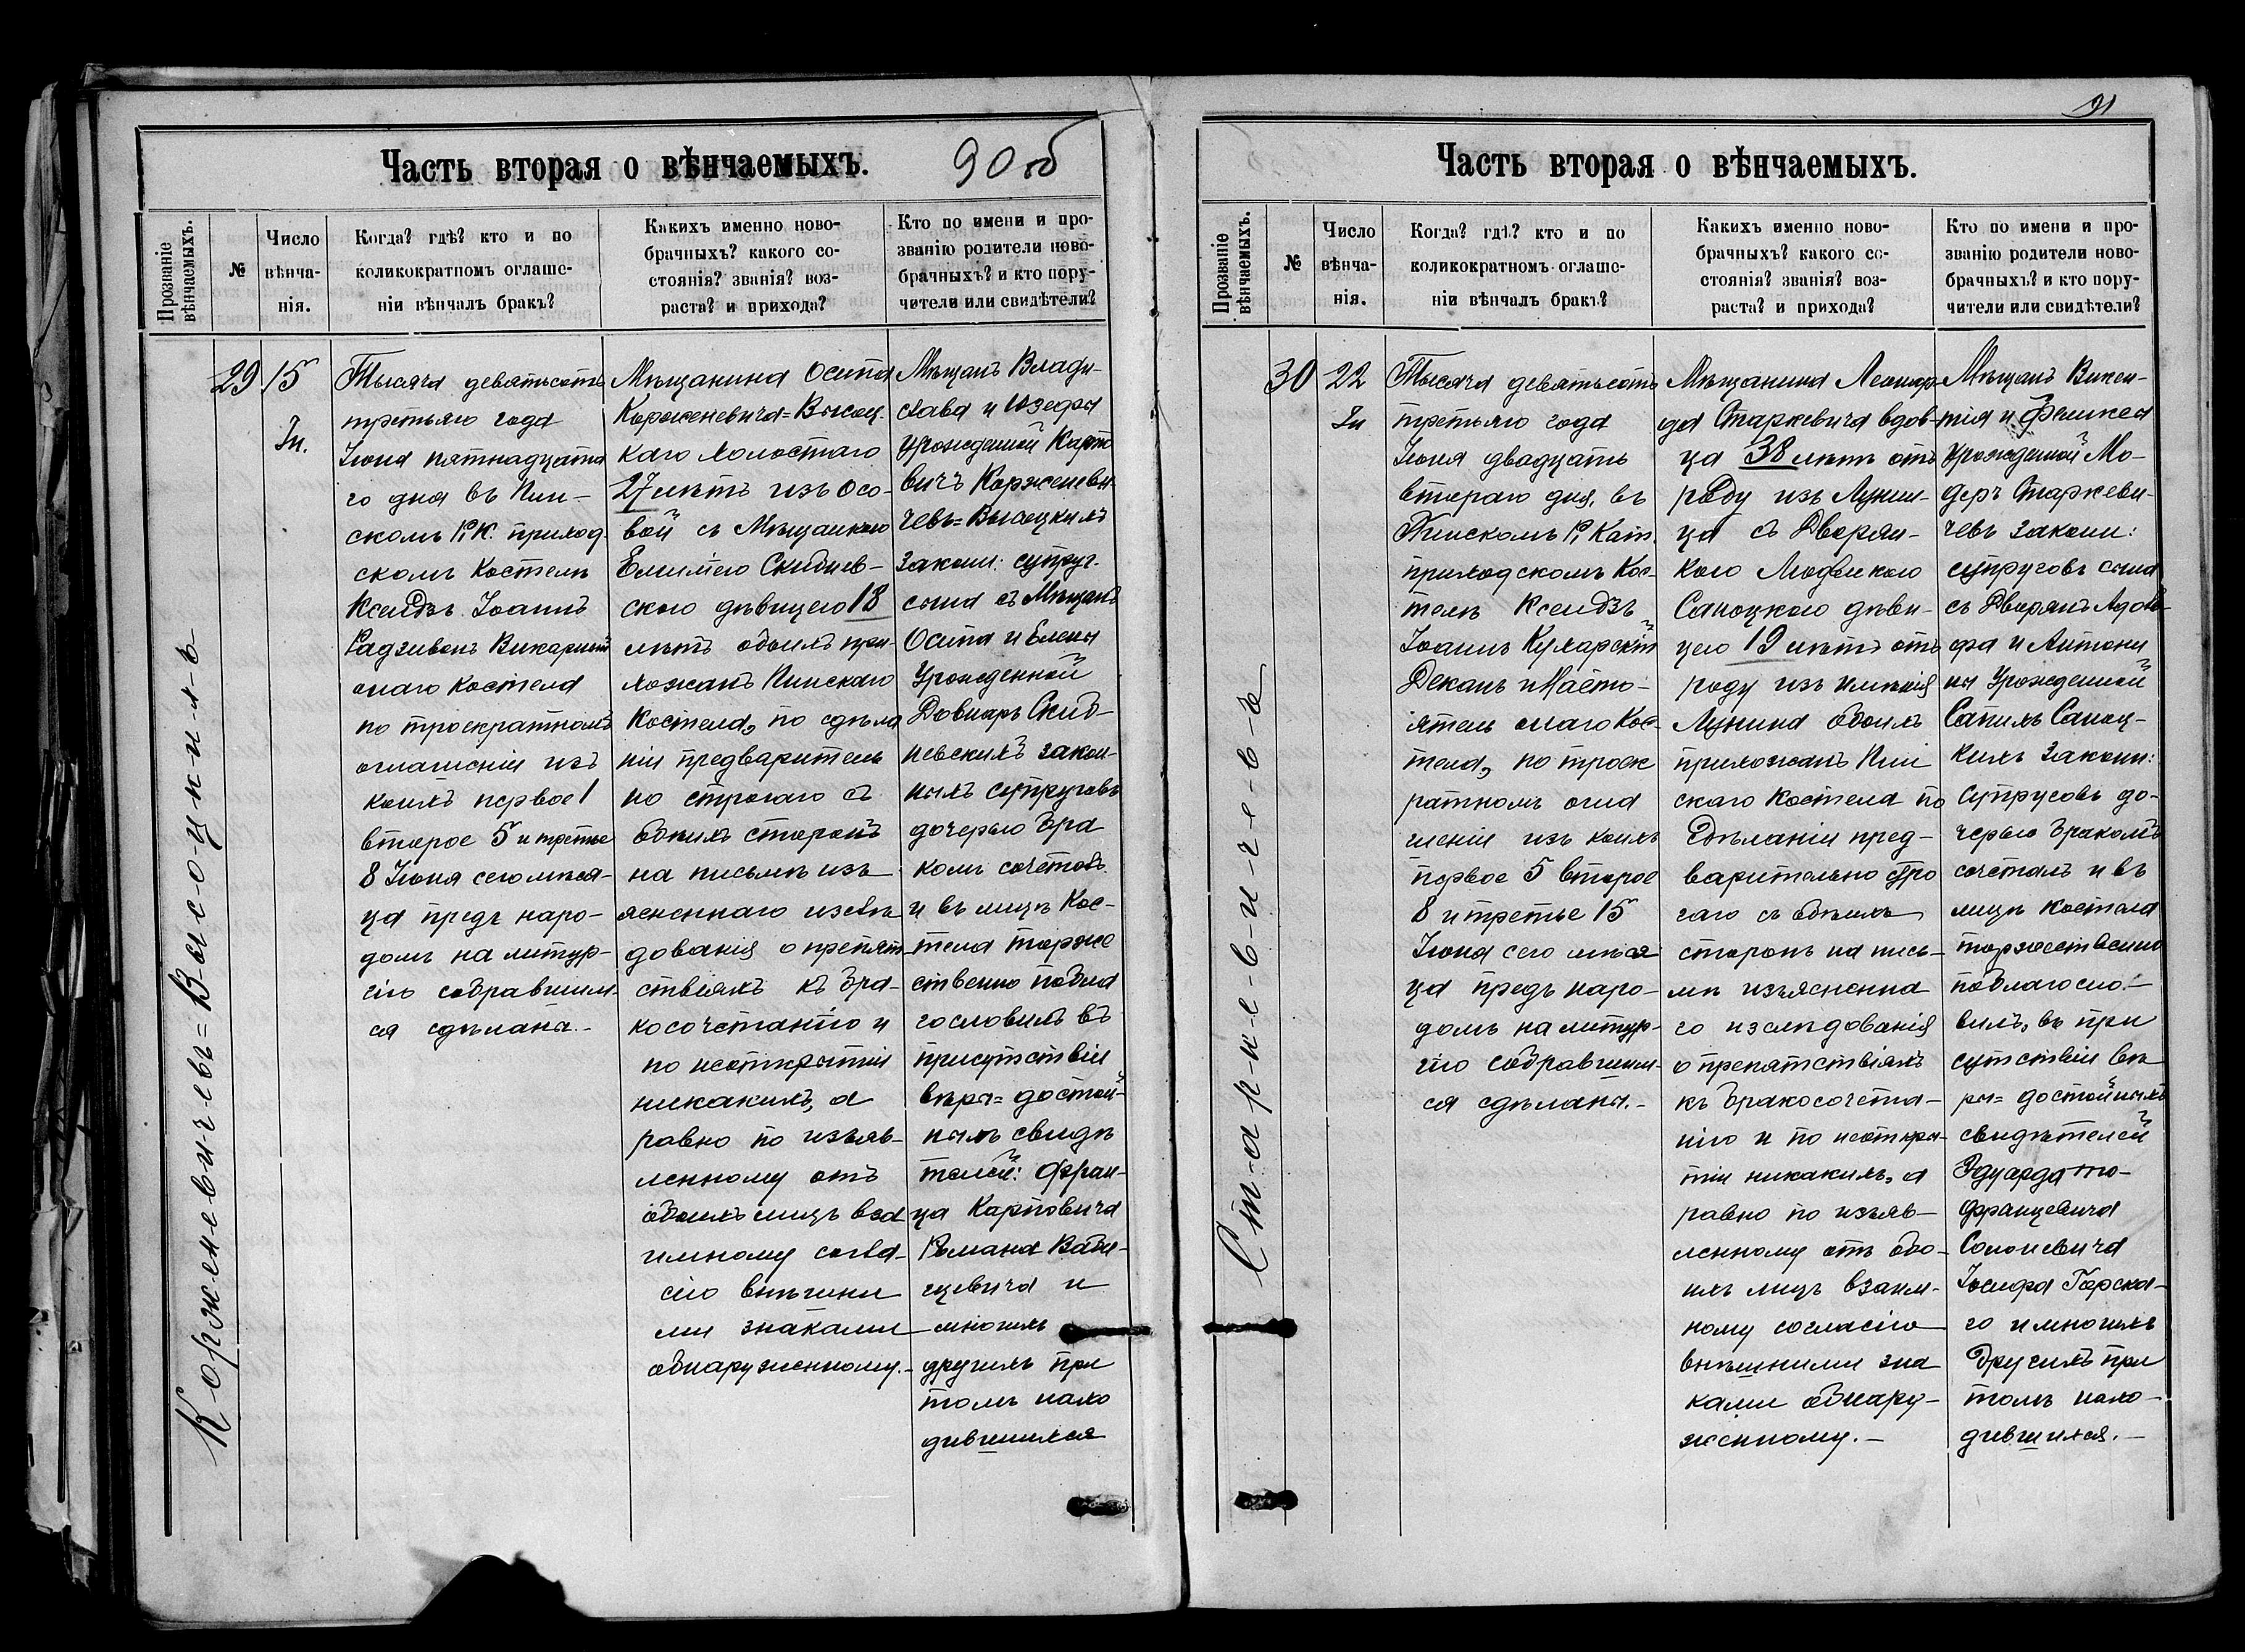 91
Часть вторая о вѣнчаемыхъ.
90 об
Прозваніе вѣнчаемыхъ.
№
Число вѣнча-нія.
Когда? гдѣ? кто и по
коликократномъ оглаше-
ніи вѣнчалъ бракъ?
Какихъ именно ново-
брачныхъ? какого со-
стоянія? званія? воз-
раста? и прихода?
Кто по имени и про-
званію родители ново-
брачныхъ? и кто пору-
чители или свидѣтели?
Корженевичевъ=Высоцкихъ
29
15
Iн.
Тысяча девятьсотъ
третьяго года
Iюня пятнадцата
го дня въ Пин-
скомъ Р. К. приход.
скомъ Костелѣ
Ксендзъ Iоаннъ
Радзивонъ Викарный
онаго Костела
по троекратномъ
оглашеніи изъ
коихъ первое 1
второе 5 и третье
8 Iюня сего мѣся-
ца предъ наро-
домъ на литур-
гію собравшим-
ся сдѣлана.-
Мѣщанина Осипа
Корженевича=Высоц.
каго холостаго
27 лѣтъ изъ Осо-
вой съ Мѣщанкою
Емиліею Скибнев-
скою дѣвицею 18
лѣтъ обоихъ при-
хожанъ Пинскаго
Костела, по сдѣла
ніи предваритель
но строгаго съ
обѣихъ сторонъ
на письмѣ изъ
ясненнаго изслѣ
дованія о препят
ствіяхъ къ бра-
косочетанію и
по неоткрытіи
никакихъ, а
равно по изъяв-
ленному отъ
обоихъ лицъ вза
имному согла-
сію внѣшни
ми знаками
обнаруженному.-
Мѣщанъ Влади-
слава и Юзефы
урожденной Карпо
вичъ Корженеви-
чевъ=Высоцкихъ
законн: супруг.
сына съ Мѣщанъ
Осипа и Елены
Урожденной
Довнаръ Скиб-
невскихъ закон-
ныхъ супруговъ
дочерью бра
комъ сочеталъ
и въ лицѣ Кос-
тела торже
ственно побла
гословилъ въ
присутствіи
вѣры=достой-
ныхъ свидѣ
телей: Фран-
ца Карповича
Романа
и
многихъ
другихъ при
томъ нахо
дившихся
Часть вторая о вѣнчаемыхъ.
Прозваніе вѣнчаемыхъ.
№
Число вѣнча-нія.
Когда? гдѣ? кто и по
коликократномъ оглаше-
ніи вѣнчалъ бракъ?
Какихъ именно ново-
брачныхъ? какого со-
стоянія? званія? воз-
раста? и прихода?
Кто по имени и про-
званію родители ново-
брачныхъ? и кто пору-
чители или свидѣтели?
Старкевичевъ
30
22
Iн
Тысяча девятьсотъ
третьяго года
Iюня двадцать
втораго дня, въ
Пинскомъ Р. Кат.
приходскомъ Кос-
телѣ Ксендзъ
Iоаннъ Кухарскій
Деканъ Насто-
ятель онаго Кос-
тела, по троек
ратномъ огла
шеніи изъ коихъ
первое 5 второе
8 и третье 15
Iюня сего мѣся
ца предъ наро-
домъ на литур-
гію собравшим-
ся сдѣлана.-
Мѣщанина Леонар
да Старкевича вдов-
ца 38 лѣтъ отъ
роду изъ Лунин-
ца съ Дворян-
кою Людвикою
Саноцкою дѣви-
цею 19 лѣтъ отъ
роду изъ имѣнія
Лунина обоихъ
прихожанъ Пин
скаго Костела по
Сдѣланіи пред-
варительно стро
гаго съ обѣихъ
сторонъ на пись-
мѣ изъясненна
го изслѣдованія
о препятствіяхъ
къ бракосочета-
нію и по неоткры-
тіи никакихъ, а
равно по изъяв-
ленному отъ обо-
ихъ лицъ взаим-
ному согласію
внѣшними зна
ками обнару-
женному.-
Мѣщанъ Викен-
тія и Феликсы
Урожденной Мо-
деръ Старкеви-
чевъ законн:
супруговъ сына
съ Дворянъ Адоль-
фа и Антони
ны Урожденной
Сапихъ Саноц-
кихъ законн:
Супруговъ до-
черью бракомъ
сочеталъ и въ
лицѣ Костела
торжественно
поблагосло-
вилъ, въ при
сутствіи вѣ
ры=достойныхъ
свидѣтелей
Эдуарда
Францевича
Солоневича
Iосифа Горска-
го и многихъ
Другихъ при
томъ нахо-
дившихся.-